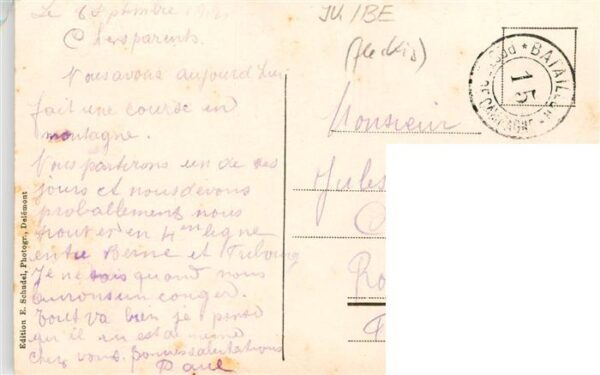 Le 6 septembre
Chers parents.
Nous avons aujourd hui
fait une course en
montagne.
Nous partirons un de ces
jours et nous devons
proballement nous
trouver en 4me ligne
entre Berne et Fribourg
Je ne sais quand nous
aurons un conger.
Tout va bien je pense
qu'il en est de même
chez vous. bonnes salutations
Paul
Edition E. Schudel, Photogr., Delémont
JU / BE
(fleckig)
POSTE DE CAMPAGNE * BATAILLON
15
Monsieur
Jules